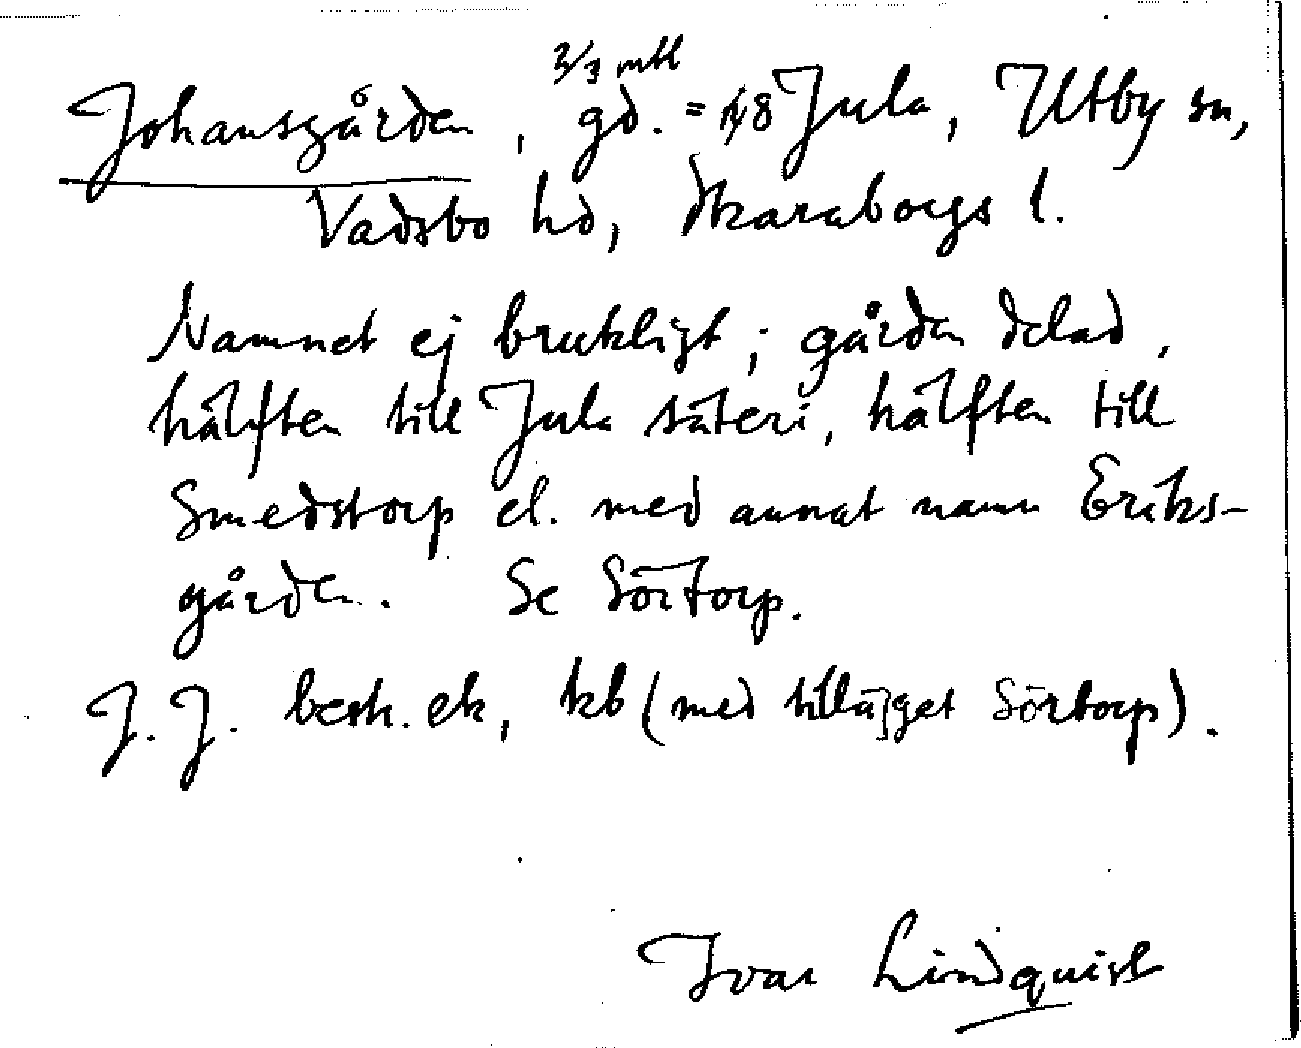 2/3 mtl
Johansgården, gd. = 18 Jula, Utby sn,
Vadsbo hd, Skaraborgs l.
Namnet ej brukligt; gården delad,
hälften till Jula säteri, hälften till
Smedstorp el. med annat namn Eriks-
gården. Se Sörtorp.
J. J. besk. ek, kb (med tillägget Sörtorp).
Ivar Lindquist